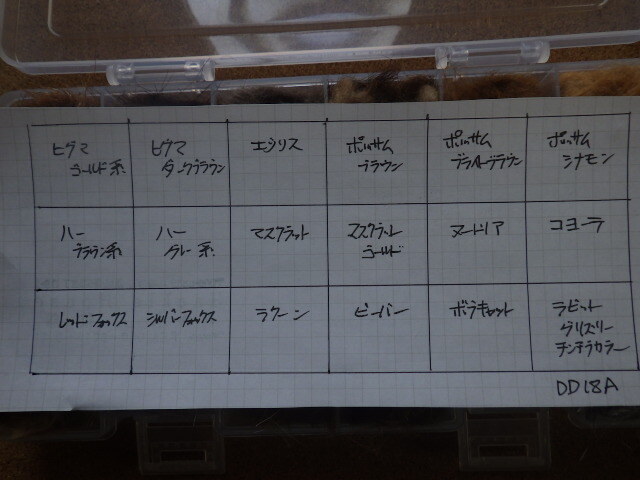 ヒグマ
ゴールド系
ヒグマ
ダークブラウン
エゾリス
ポッサム
ブラウン
ポッサム
ポッサム
シナモン
ハー
ブラウン系
ハー
グレー系
マスクラット
マスクラット
ゴールド
ヌートリア
コヨーテ
レッドフォックス
シルバーフォックス
ラクーン
ビーバー
ボブキャット
ラビット
グリズリー
チンチラカラー
DD18A